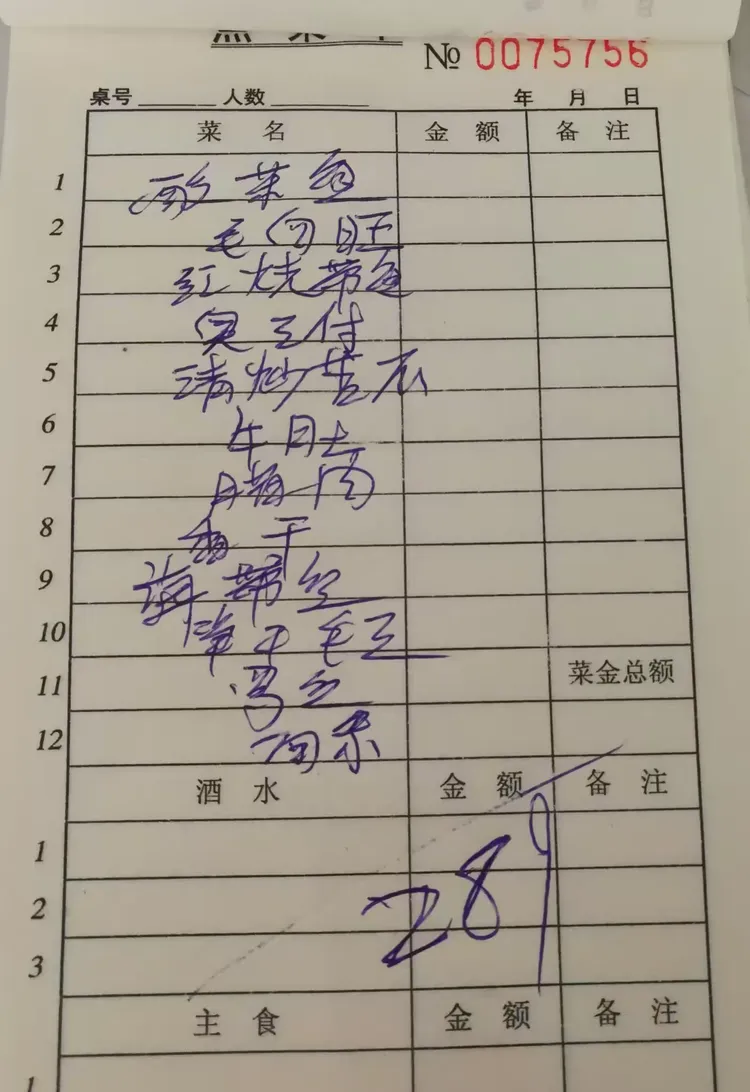 点菜单
№ 0075756
桌号 人数 年 月 日
菜 名 金 额 备 注
1 酸菜鱼
2 毛血旺
3 红烧带鱼
4 臭豆付
5 清炒
6 牛肚
7 腊肉
8 香干
9 海带丝
10 毛豆
11 菜金总额
12
酒 水 金 额 备 注
1
2 289
3
主 食 金 额 备 注
1